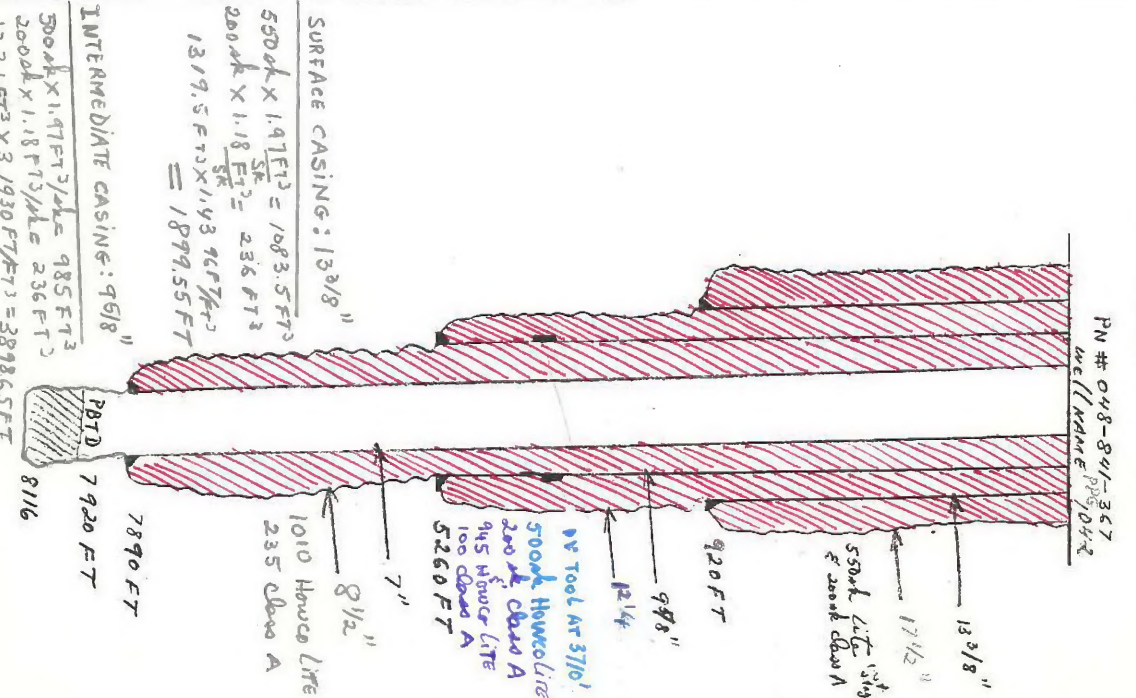 PN # 048-841-367
well NAME PPG, 042
13 3/8"
17 1/2"
550sk Lite
& 200sk Class A
920 FT
9 5/8"
12 1/4
DV TOOL AT 3710'
500sk HOWCO LITE
& 200 sk Class A
945 HOWCO LITE
100 class A
5260 FT
7"
8 1/2"
1010 HOWCO LITE
235 class A
7890 FT
7920 FT
PBTD
8116
SURFACE CASING: 13 3/8"
550sk X 1.97 FT3/SK = 1083.5 FT3
200sk X 1.18 FT3/SK = 236 FT3
1319.5 FT3 X 1.4396 FT/FT3
= 1899.55 FT
INTERMEDIATE CASING: 9 5/8"
500sk X 1.97 FT3/sk = 985 FT3
200sk X 1.18 FT3/sk = 236 FT3
1221 FT3 X 3.1930 FT/FT3 = 3898.65 FT